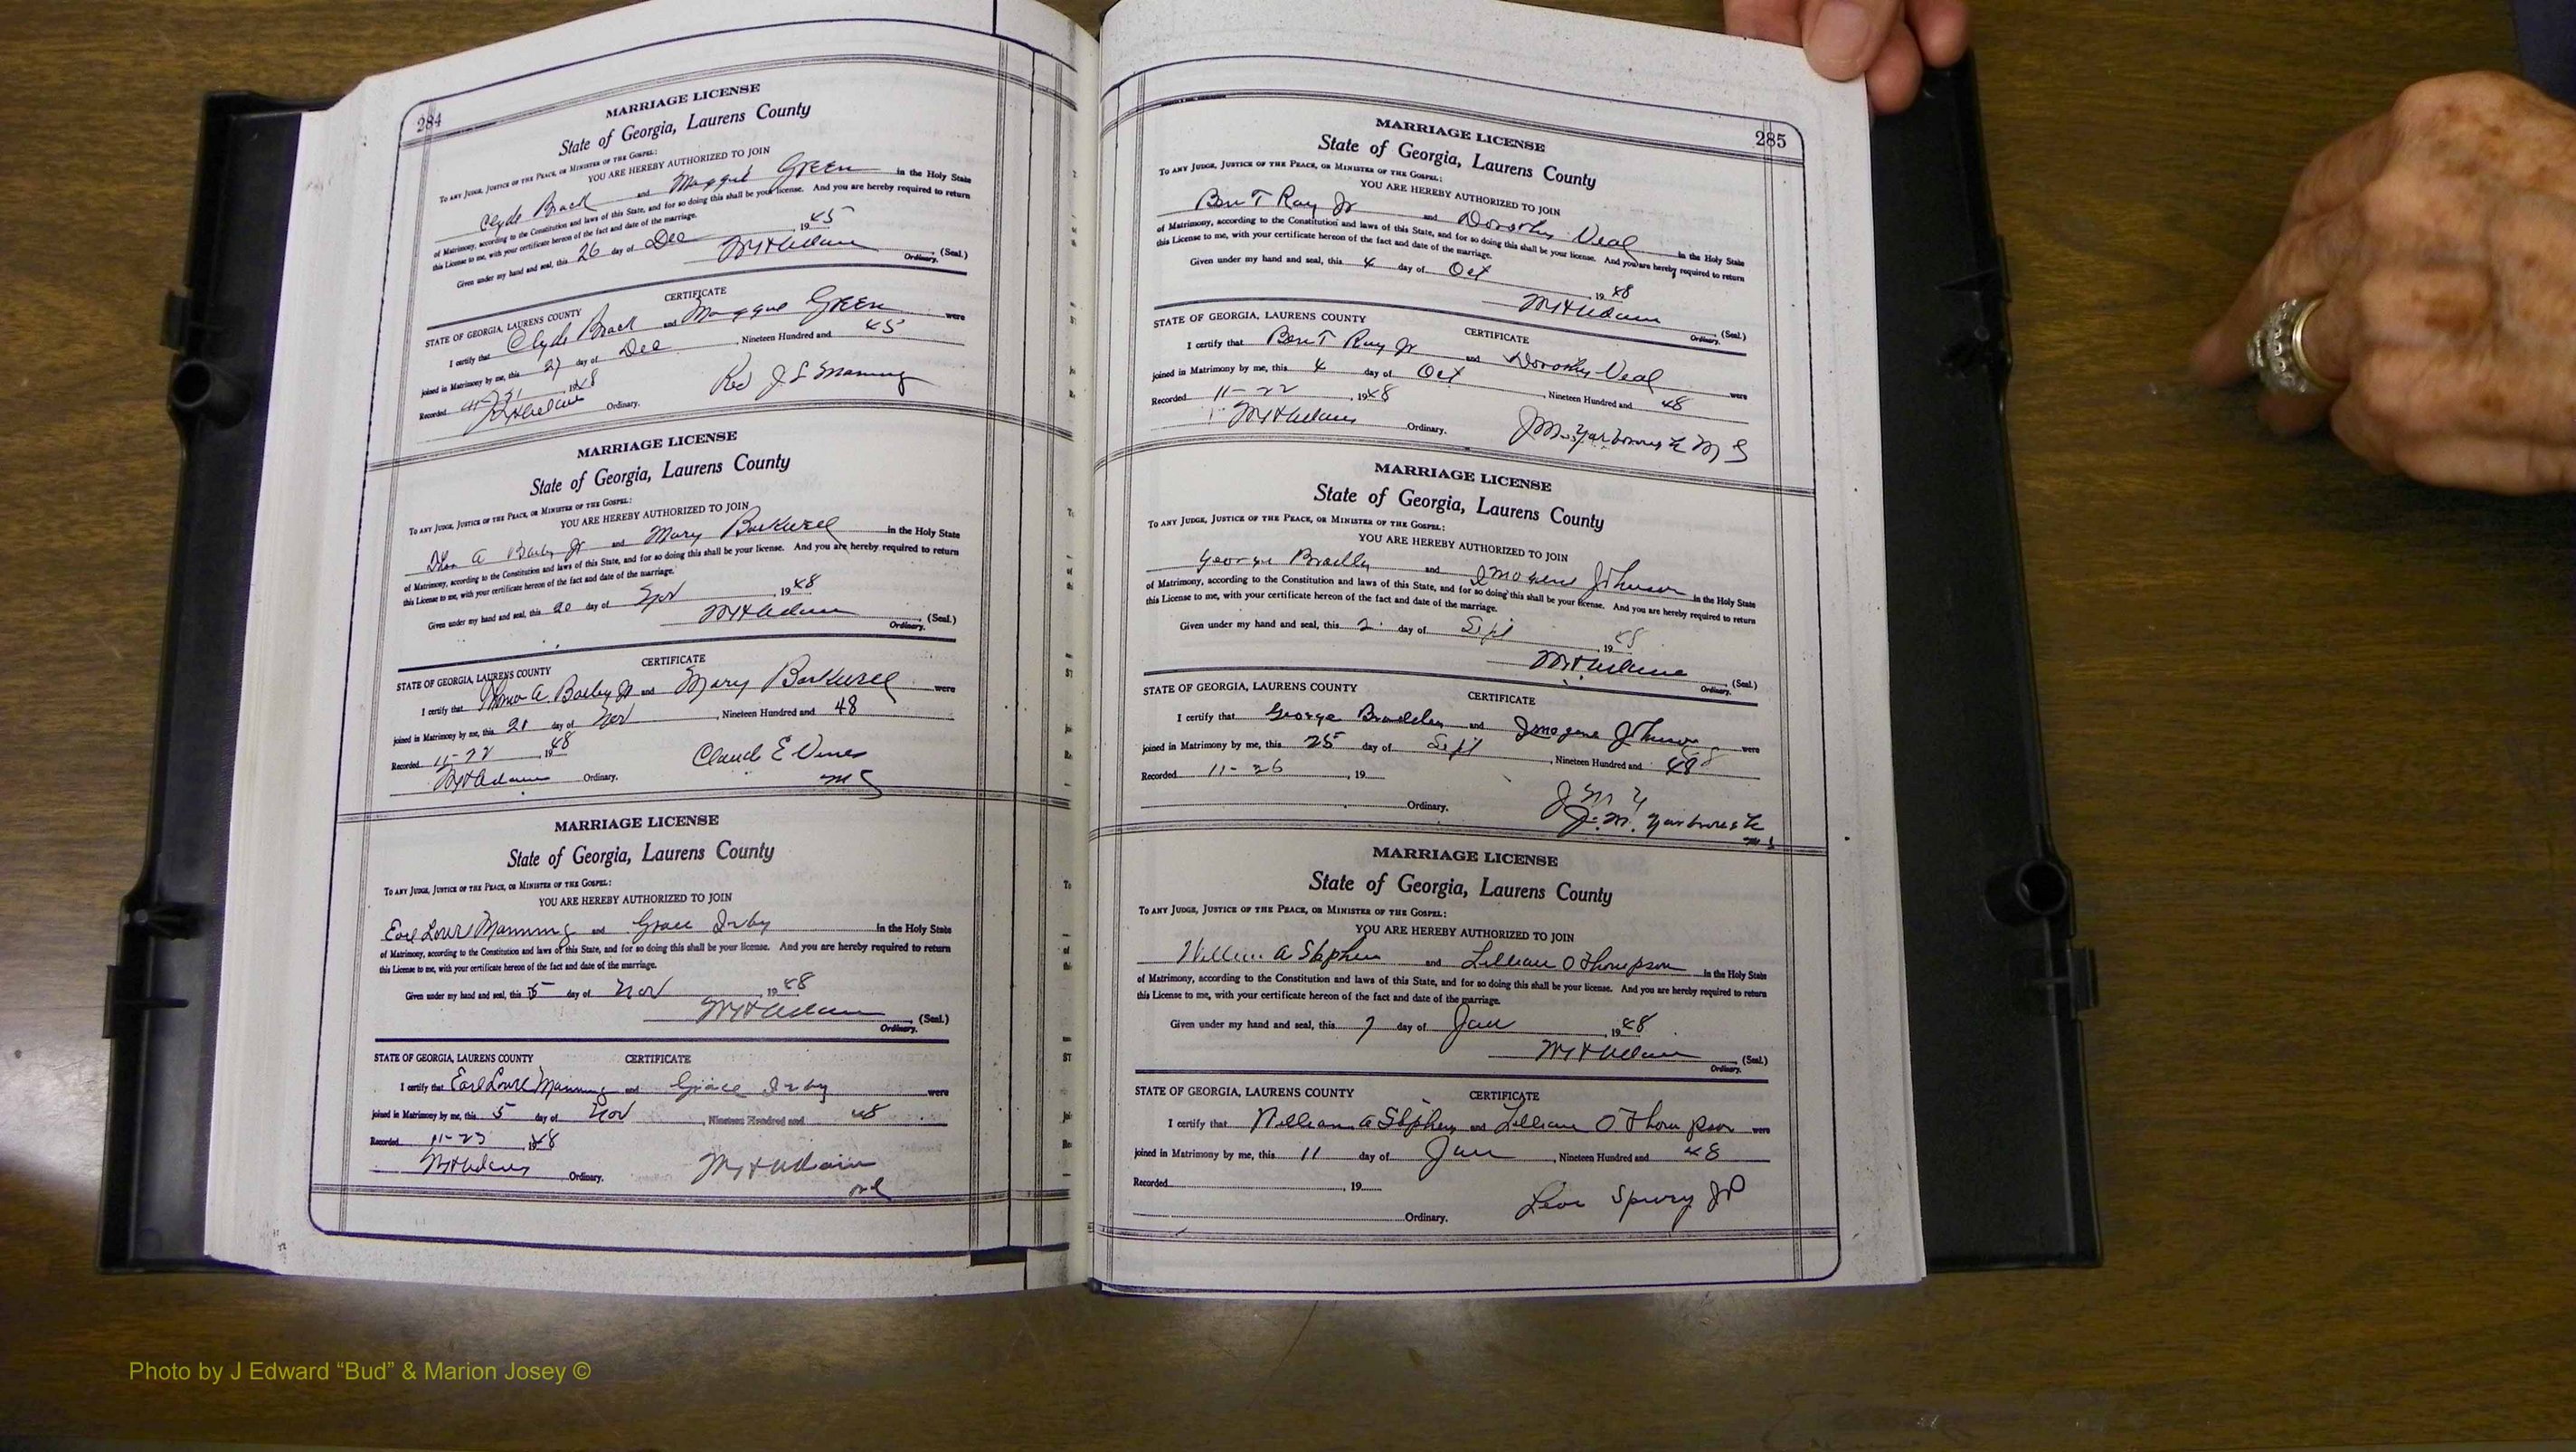 284
MARRIAGE LICENSE
State of Georgia, Laurens County
To any Judge, Justice of the Peace, or Minister of the Gospel:
YOU ARE HEREBY AUTHORIZED TO JOIN
Clyde Brack and Maggie Green in the Holy State
of Matrimony, according to the Constitution and laws of this State, and for so doing this shall be your license. And you are hereby required to return
this License to me, with your certificate hereon of the fact and date of the marriage.
Given under my hand and seal, this 26 day of Dec 1945
(Seal.)
Ordinary.
CERTIFICATE
STATE OF GEORGIA, LAURENS COUNTY
I certify that Clyde Brack and Maggie Green were
joined in Matrimony by me, this 27 day of Dec, Nineteen Hundred and 45
Recorded 1948 Rev J L Manning
Ordinary.
MARRIAGE LICENSE
State of Georgia, Laurens County
To any Judge, Justice of the Peace, or Minister of the Gospel:
YOU ARE HEREBY AUTHORIZED TO JOIN
A Jr and Mary in the Holy State
of Matrimony, according to the Constitution and laws of this State, and for so doing this shall be your license. And you are hereby required to return
this License to me, with your certificate hereon of the fact and date of the marriage.
Given under my hand and seal, this 20 day of Nov, 1948
(Seal.)
Ordinary.
CERTIFICATE
STATE OF GEORGIA, LAURENS COUNTY
I certify that A. Jr and Mary were
joined in Matrimony by me, this day of Nov, Nineteen Hundred and 48
Recorded 11-22, 1948
Claude E Vines
Ordinary. MG
MARRIAGE LICENSE
State of Georgia, Laurens County
To any Judge, Justice of the Peace, or Minister of the Gospel:
YOU ARE HEREBY AUTHORIZED TO JOIN
Earl Manning and Grace Irby in the Holy State
of Matrimony, according to the Constitution and laws of this State, and for so doing this shall be your license. And you are hereby required to return
this License to me, with your certificate hereon of the fact and date of the marriage.
Given under my hand and seal, this 5 day of Nov, 1948
(Seal.)
Ordinary.
STATE OF GEORGIA, LAURENS COUNTY CERTIFICATE
I certify that Earl Manning and Grace Irby were
joined in Matrimony by me, this 5 day of Nov, Nineteen Hundred and 48
Recorded 11-23, 1948
Ordinary.
285
MARRIAGE LICENSE
State of Georgia, Laurens County
To any Judge, Justice of the Peace, or Minister of the Gospel:
YOU ARE HEREBY AUTHORIZED TO JOIN
Ben T Ray Jr and Dorothy Veal in the Holy State
of Matrimony, according to the Constitution and laws of this State, and for so doing this shall be your license. And you are hereby required to return
this License to me, with your certificate hereon of the fact and date of the marriage.
Given under my hand and seal, this 4 day of Oct 1948
(Seal.)
Ordinary.
STATE OF GEORGIA, LAURENS COUNTY CERTIFICATE
I certify that Ben T Ray Jr and Dorothy Veal were
joined in Matrimony by me, this 4 day of Oct, Nineteen Hundred and 48
Recorded 11-22, 1948
Ordinary. J M Yarborough M G
MARRIAGE LICENSE
State of Georgia, Laurens County
To any Judge, Justice of the Peace, or Minister of the Gospel:
YOU ARE HEREBY AUTHORIZED TO JOIN
George Bradley and Imogene Johnson in the Holy State
of Matrimony, according to the Constitution and laws of this State, and for so doing this shall be your license. And you are hereby required to return
this License to me, with your certificate hereon of the fact and date of the marriage.
Given under my hand and seal, this day of Sept, 19
(Seal.)
Ordinary.
STATE OF GEORGIA, LAURENS COUNTY CERTIFICATE
I certify that George Bradley and Imogene Johnson were
joined in Matrimony by me, this 25 day of Sept, Nineteen Hundred and 48
Recorded 11-26, 19
J M Y
Ordinary. J. M. Yarborough
MG
MARRIAGE LICENSE
State of Georgia, Laurens County
To any Judge, Justice of the Peace, or Minister of the Gospel:
YOU ARE HEREBY AUTHORIZED TO JOIN
William A Stephens and Lillian O Thompson in the Holy State
of Matrimony, according to the Constitution and laws of this State, and for so doing this shall be your license. And you are hereby required to return
this License to me, with your certificate hereon of the fact and date of the marriage.
Given under my hand and seal, this 7 day of Jan, 1948
(Seal.)
Ordinary.
STATE OF GEORGIA, LAURENS COUNTY CERTIFICATE
I certify that William A Stephens and Lillian O Thompson were
joined in Matrimony by me, this 11 day of Jan, Nineteen Hundred and 48
Recorded, 19
Ordinary. JP
Photo by J Edward “Bud” & Marion Josey ©